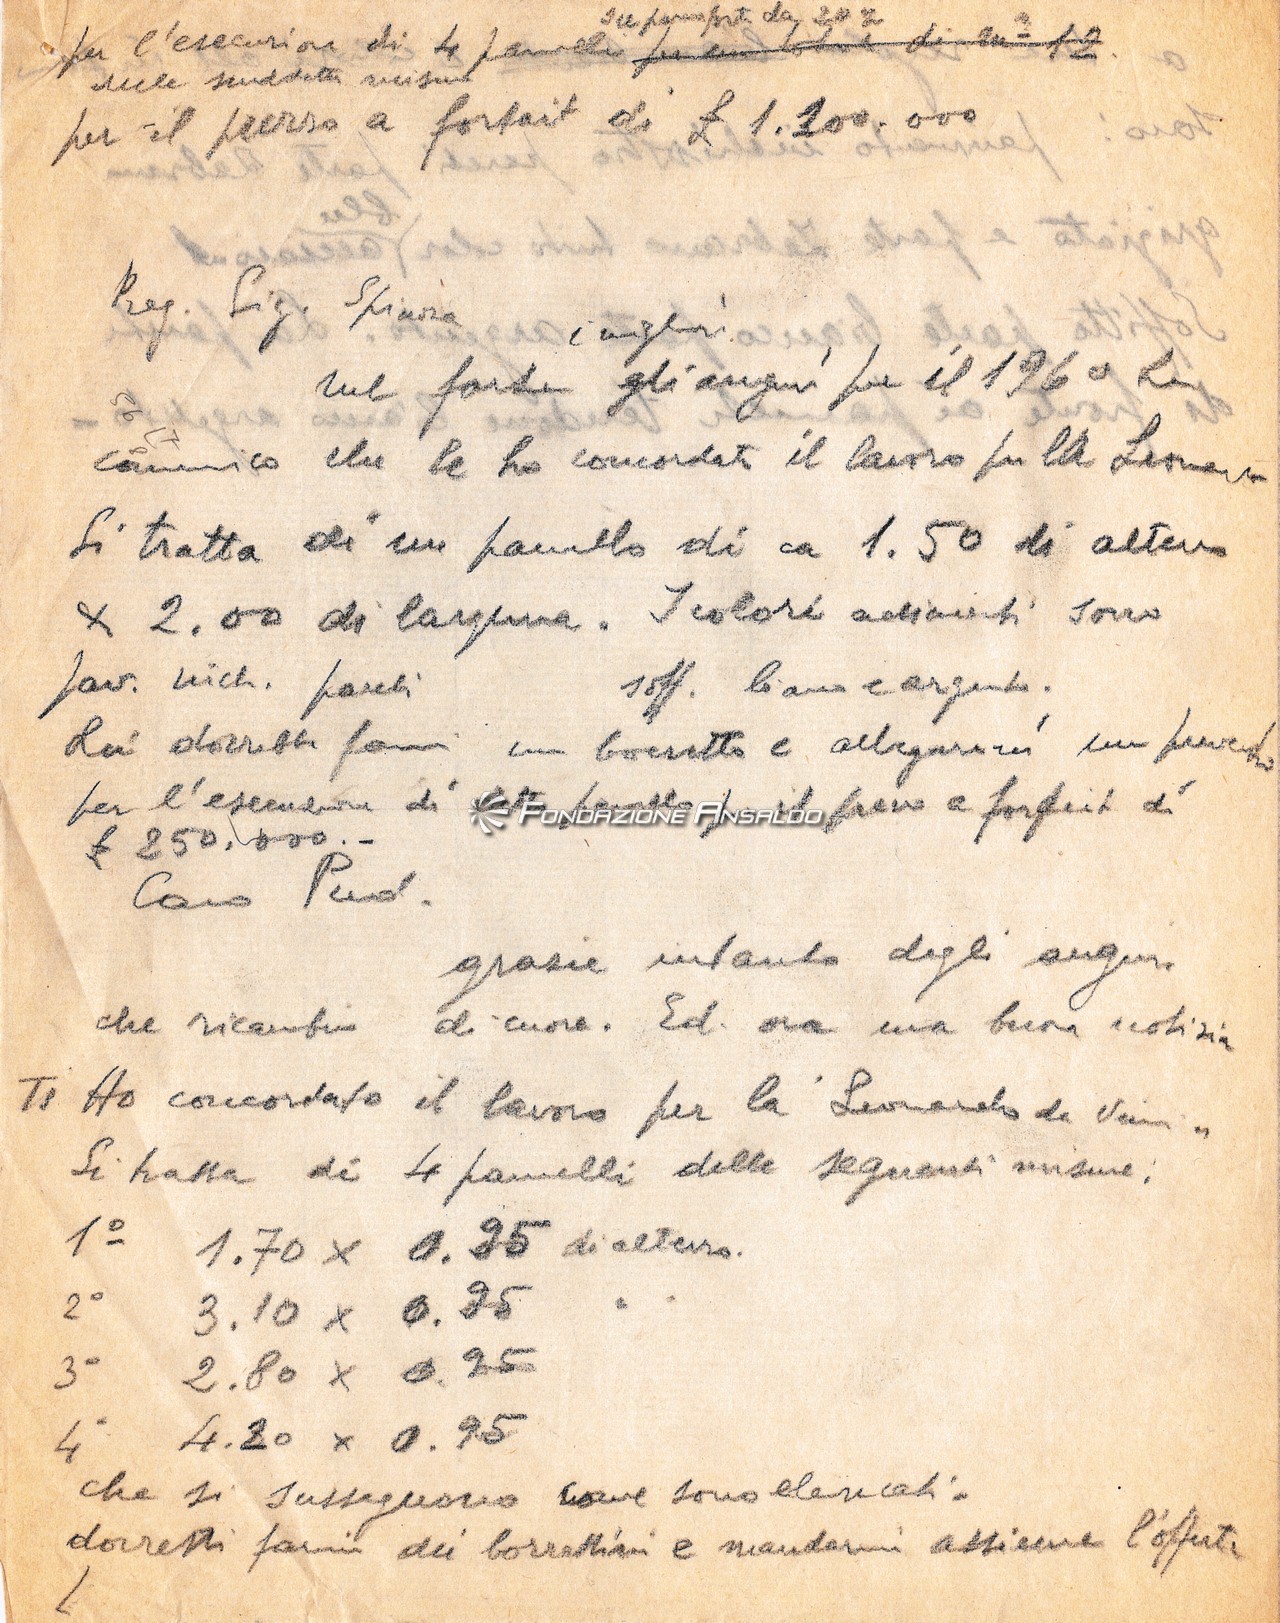 per l'esecuzione di 4 pannelli per un totale di m² 12.
delle suddette misure
per il prezzo a forfait di £ 1.200.000
Preg. Sig. Spinosa
i migliori
nel porLe gli auguri per il 1960 Le
comunico che le ho concordato il lavoro per la Leonardo
Si tratta di un pannello di ca 1.50 di altezza
x 2.00 di larghezza. I colori adiacenti sono
pav. pareti soff. bianco e argento.
Lei dovrebbe farmi un bozzetto e allegarmi un prevent
per l'esecuzione di pannello per il prezzo a forfait di
£ 250.000.-
FONDAZIONE ANSALDO
Caro
grazie intanto degli auguri
che ricambio di cuore. Ed ora una buona notizia
Ti Ho concordato il lavoro per la "Leonardo da Vinci"
Si tratta di 4 pannelli delle seguenti misure:
1° 1.70 x 0.95 di altezza.
2° 3.10 x 0.95 " "
3° 2.80 x 0.95
4° 4.20 x 0.95
che si susseguono come sono elencati.
dovresti farmi dei bozzettini e mandarmi assieme l'offerta